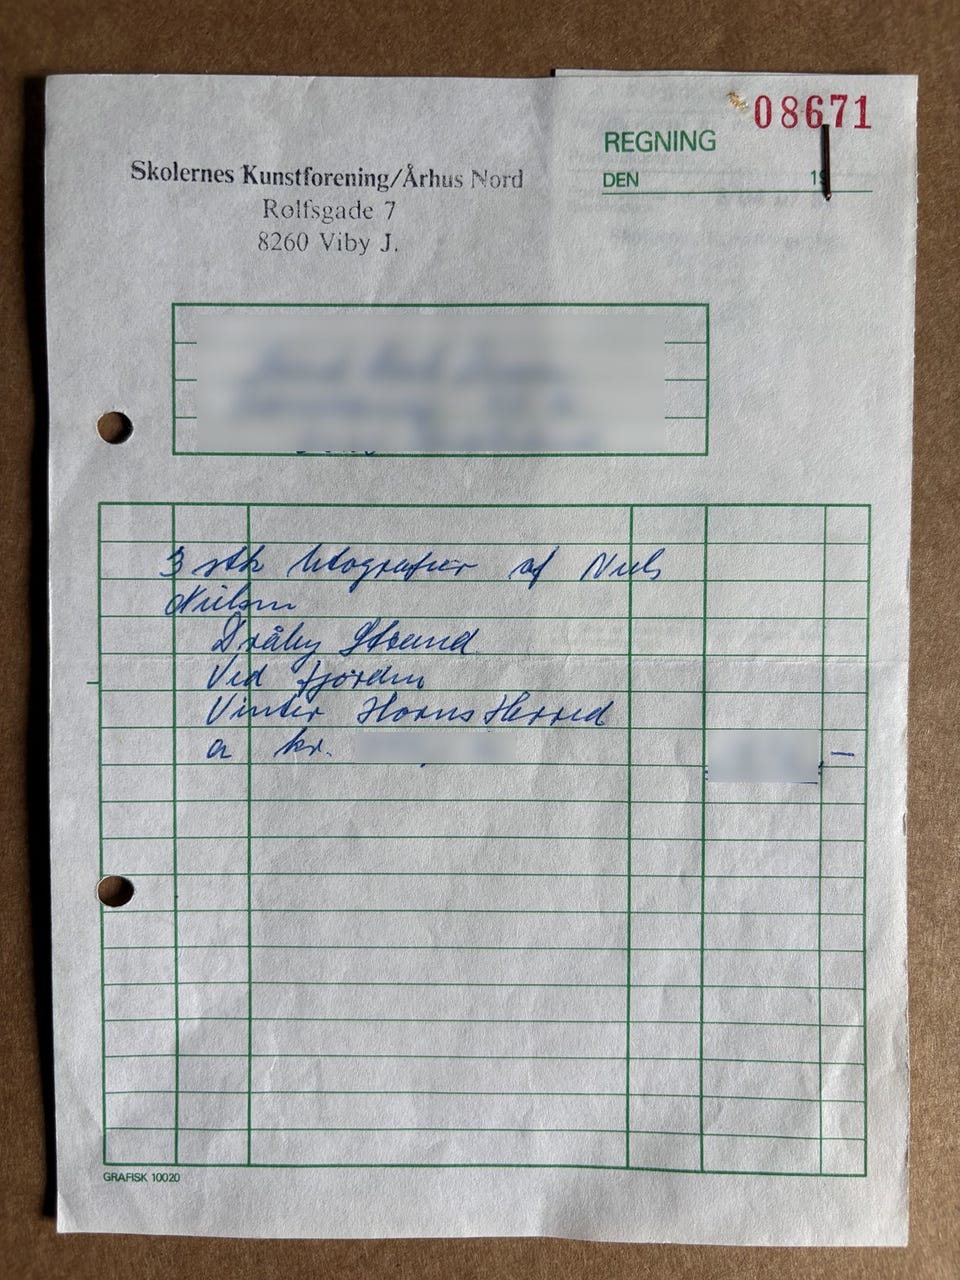 08671
REGNING
DEN 19
Skolernes Kunstforening/Århus Nord
Rolfsgade 7
8260 Viby J.
3 stk litografier af Niels
Nielsen
Dråby Strand
Ved fjorden
Vinter Horns Herred
a kr.
GRAFISK 10020